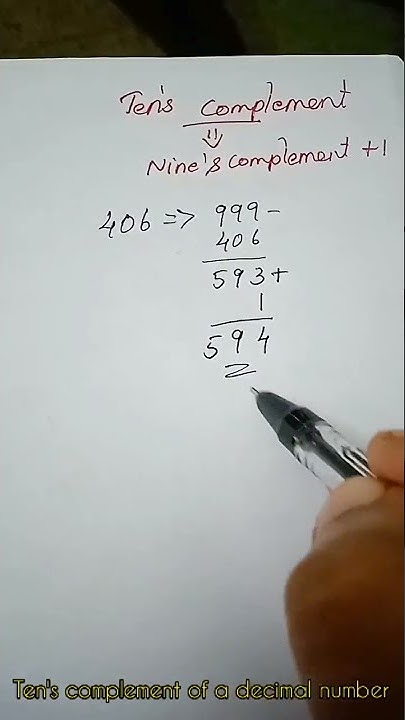 Ten's complement
⇓
Nine's complement +1
406 => 999 -
406
593 +
1
594
Ten's complement of a decimal number